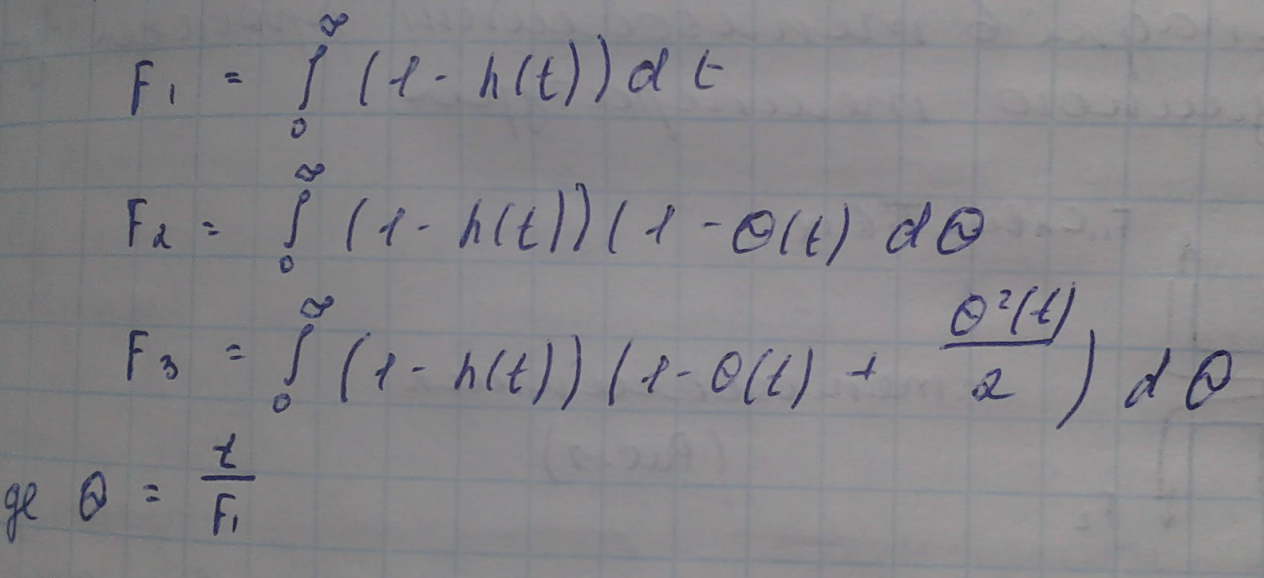 F₁ = ∫₀^∞ (1 - h(t)) dt
F₂ = ∫₀^∞ (1 - h(t)) (1 - Θ(t) dΘ
F₃ = ∫₀^∞ (1 - h(t)) (1 - Θ(t) + Θ²(t)/2) dΘ
де Θ = t/F₁